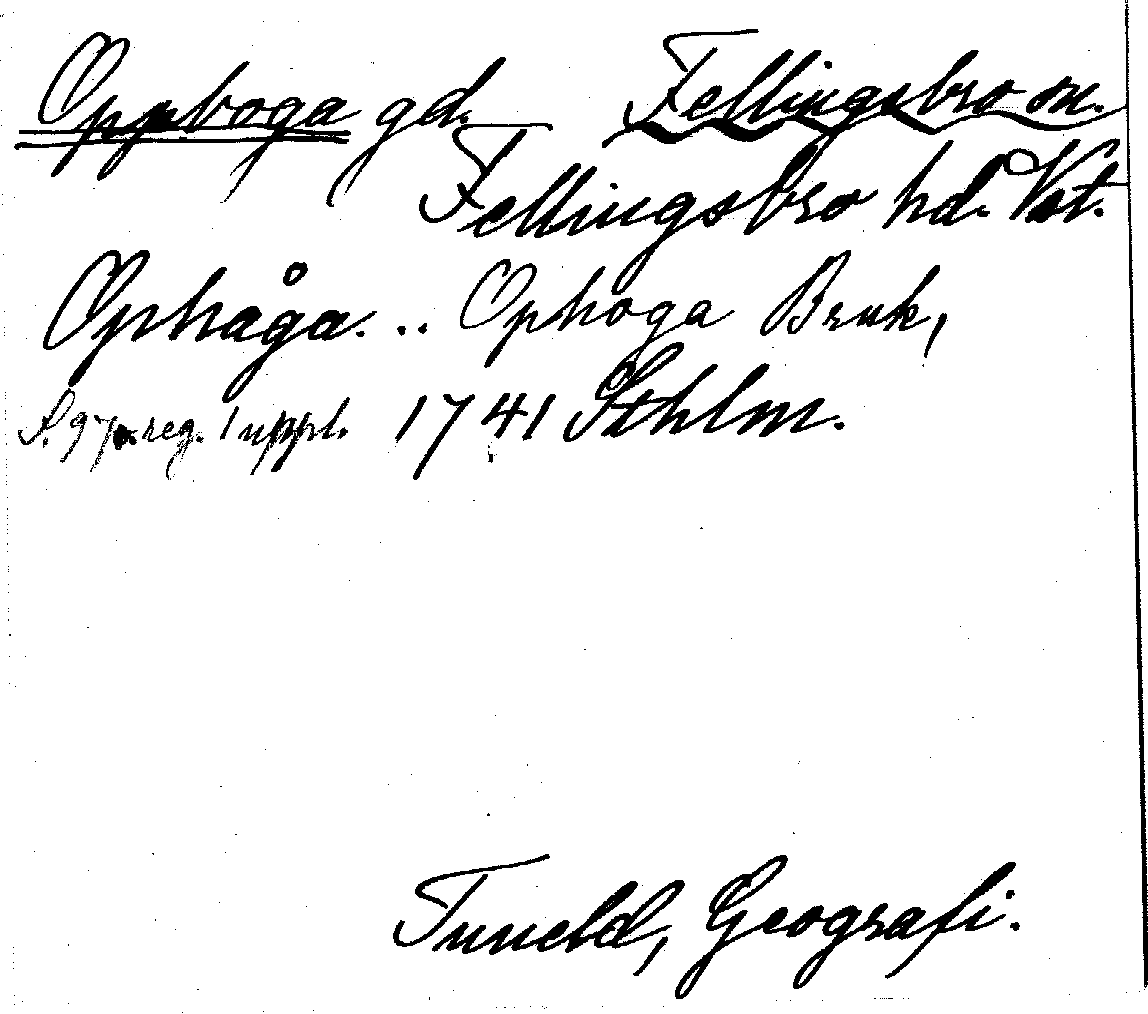 Oppboga gd. Fellingsbro sn.
Fellingsbro hd. Vst.
Ophåga. .. Ophoga Bruk,
S. 97, reg. 1 uppl. 1741 Sthlm.
Tuneld, Geografi.